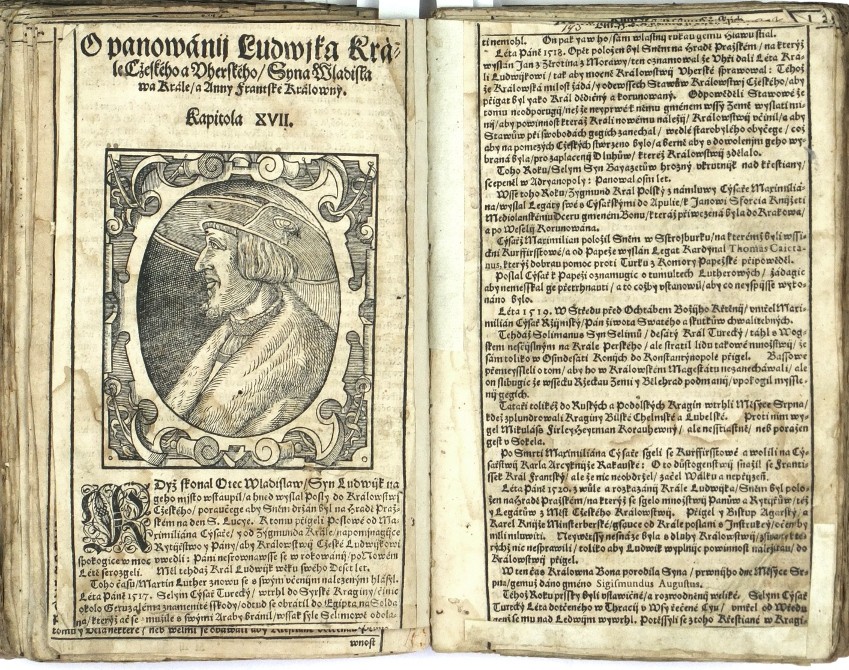 O panowánij Ludwjka Krá-
le Cžeského a Vherského/ Syna Wladisla
wa Krále/ a Anny Frantské Králowny.
Kapitola XVII.
KDyž skonal Otec Wladislaw/ Syn Ludwijk na
geho místo wstaupil/ a hned wyslal Posly do Králowstwí
Cžeského/ poraučege aby Sněm držán byl na Hradě Praž-
ském na den S. Lucye. K tomu přigeli Poslowé od Ma-
ximiliána Cýsaře/ y od Zygmunda Krále/ napomijnagijce
Rytijřstwo y Pány/ aby Králowstwij Cžeské Ludwijkowi
spokogice w moc vwedli: Páni nesrownawsse se w rokowánij/ po Nowém
Létě se rozgeli. Měl tehdáž Král Ludwijk wěku swého Deset let.
Toho času Martin Luther znowu se s swým včenijm nalezeným hlásyl.
Léta Páně 1517. Selym Cýsař Turecký/ wtrhl do Syrské Kraginy/ činie
okolo Geruzaléma znamenité sskody/ odtud se obrátil do Egipta/ na Soldá
na/ kterýž ač se mužsky s swými Araby bránil/ wssak syle Selimowě odola-
wnost
ti nemohl. On pak yaw ho/ sám wlastnij rukau gemu Hlawu stial.
Léta Páně 1518. Opět položen byl Sněm na Hradě Pražském/ na kterýž
wyslán Jan z Žerotina z Morawy/ ten oznamowal že Vhři dali Léta Krá-
li Ludwijkowi/ tak aby mocně Králowstwij Vherské sprawowal: Téhož
že Králowská milost žádá/ y ode wssech Stawůw Králowstwij Cžeského/ aby
přigat byl yako Král dědičný a korunowaný. Odpowěděli Stawowé že
tomu neodporugij/ než že neyprwé k němu gménem wssij Země wyslati mi-
nij/ aby powinnost kteráž Králi nowému náležij/ Králowstwij včinil/ a aby
Stawůw při swobodách gegich zanechal/ wedlé starobylého obyčege/ což
aby na pomezých Cžeských stwrzeno bylo/ a berně aby s dowolenijm geho wy-
braná byla/ pro zaplacenij Dluhůw/ kteréž Králowstwij zdělalo.
Toho Roku/ Selym Syn Bayazetůw hrozný vkrutnijk nad křestiany/
sčepeněl w Adryanopoly: Panowal osm let.
Wssč toho Roku/ Zygmund Král Polský z námluwy Cýsaře Maximiliá-
na/ wyslal Legáty swé s Cýsařskými do Apulie/ k Janowi Sforcia Knijžeti
Mediolanskému Dceru gménem Bonu/ kteráž přiwezená byla do Krakowa/
a po Weselij Korunowana.
Cýsař Maximilian položil Sněm w Sstrosburku/ na kterémž byli wssi-
ckni Kurffirsstowé/ a od Papeže wyslán Legat Kardynal Thomas Caieta-
nus, kterýž dobrau pomoc proti Turku z Komory Papežské přípowěděl.
Poslal Cýsař k Papeži oznamugic o tumultech Lutherowých/ žádagic
aby nemesskal ge přetrhnauti/ a to což by vstanowil/ aby co neyspijsse wyko-
náno bylo.
Léta 1519. W Středu před Ochtábem Božijho Křtěnij/ vmřel Maxi-
milián Cýsař Ržijmský/ Pán žiwota Swatého a skutkůw chwalitebných.
Tehdáž Solimanus Syn Selimů/ desátý Král Turecký/ táhl s Wog-
skem nesčijslným na Krále Perského/ ale stratil lidu takowé množstwij/ že
sám toliko w Osmdesáti Konijch do Konstantynopole přigel. Bassowé
přemeyssleli o tom/ aby ho w Králowském Magestátu nezanechawali/ ale
on slibugic že wssecku Rzeckau Zemi y Bělehrad podmanij/ vpokogil mysle
nij gegich.
Tataři tolikéž do Ruských a Podolských Kragin wtrhli Měsyce Srpna/
kdež zplundrowali Kraginy Bilké Chelmské a Lubelské. Proti nim wy-
gel Mikuláss Firley Heytman Korauhewný/ ale nesstiastně/ neb poražen
gest v Sokela.
Po Smrti Maximiliána Cýsaře sgeli se Kurffirsstowé a wolili na Cý-
sařstwij Karla Arcyknijže Rakauské: O to důstogenstwij snažil se Franti-
ssek Král Frantský/ ale že nic neobdržel/ začal Wálku a nepřijzeň.
Léta Páně 1520. z wůle a rozkázánij Krále Ludwijka/ Sněm byl polo-
žen na Hradě Pražském/ na kterýž se sgelo množstwij Panůw a Rytijřůw/ též
y Legátůw z Měst Cžeského Králowstwij. Přigel y Bistup Agarský/ a
Karel Knijže Minsterberské/ gsauce od Krále poslani s Instrukcý/ o čem by
měli mluwiti. Neywětssý nesnáze byla s dluhy Králowstwij/
rých ž nic nesprawili/ toliko aby Ludwik wyplnijc powinnost náležitau/ do
Králowstwij přigel.
W ten čas Králowna Bona porodila Syna/ prwnijho dne Měsýce Sr-
pna/ gemuž dáno gméno Sigismundus Augustus.
Téhož Roku prssky byli vstawičné/ a rozwodněnij weliké. Selymi Cýsař
Turecký Léta dotčeného w Thracij w Wsy řečené Cyu/ vmřel od Wředu
genž se mu nad Ledwijm wywrhl. Potěssyli se z toho Křestiané w Kragi-